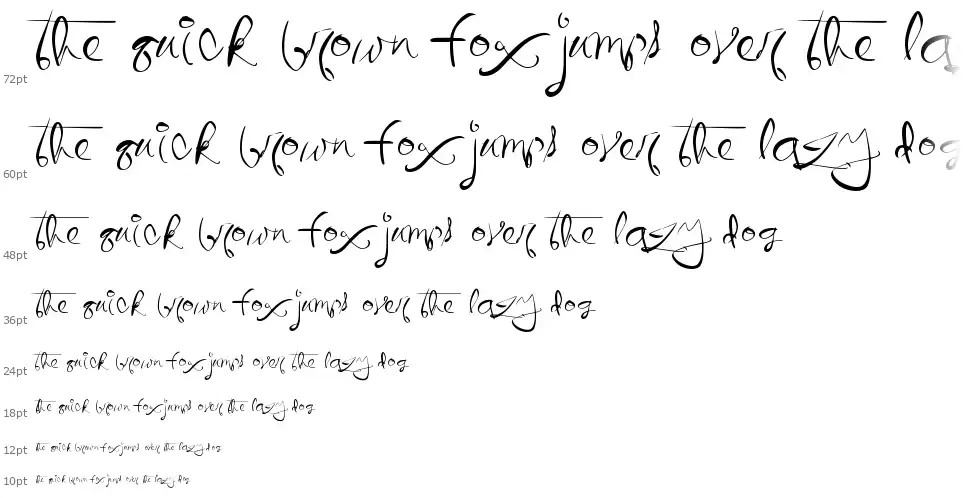 the quick brown fox jumps over the la
72pt
the quick brown fox jumps over the lazy dog
60pt
the quick brown fox jumps over the lazy dog
48pt
the quick brown fox jumps over the lazy dog
36pt
the quick brown fox jumps over the lazy dog
24pt
the quick brown fox jumps over the lazy dog
18pt
the quick brown fox jumps over the lazy dog
12pt
the quick brown fox jumps over the lazy dog
10pt